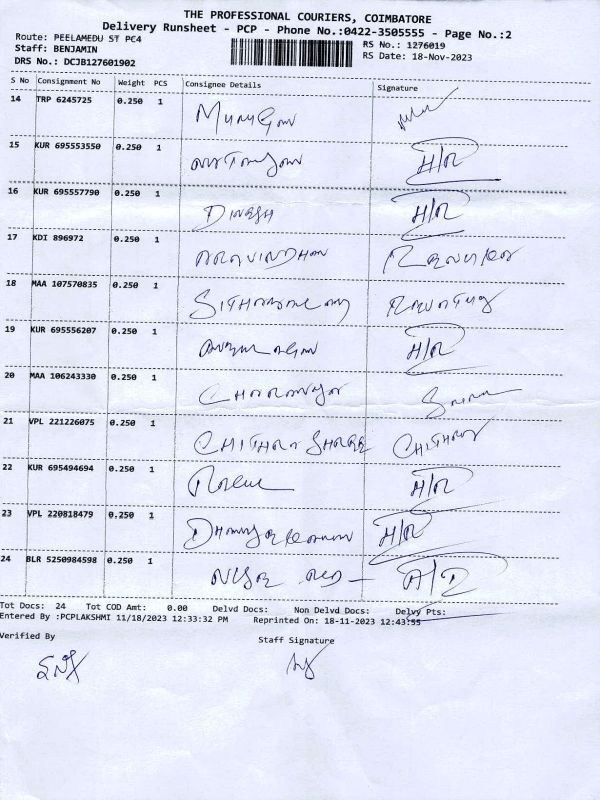 THE PROFESSIONAL COURIERS, COIMBATORE
Delivery Runsheet - PCP - Phone No.:0422-3505555 - Page No.:2
Route: PEELAMEDU ST PC4 RS No.: 1276019
Staff: BENJAMIN RS Date: 18-Nov-2023
DRS No.: DCJB127601902
S No Consignment No Weight PCS Consignee Details Signature
14 TRP 6245725 0.250 1 Murugan
15 KUR 695553550 0.250 1 H/R
16 KUR 695557790 0.250 1 Dinesh H/R
17 KDI 896972 0.250 1 Aravindhan
18 MAA 107570835 0.250 1
19 KUR 695556207 0.250 1 H/R
20 MAA 106243330 0.250 1
21 VPL 221226075 0.250 1 Chithra Chithra
22 KUR 695494694 0.250 1 H/R
23 VPL 220818479 0.250 1 H/R
24 BLR 5250984598 0.250 1
Tot Docs: 24 Tot COD Amt: 0.00 Delvd Docs: Non Delvd Docs: Delvy Pts:
Entered By :PCPLAKSHMI 11/18/2023 12:33:32 PM Reprinted On: 18-11-2023 12:43:55
Verified By Staff Signature